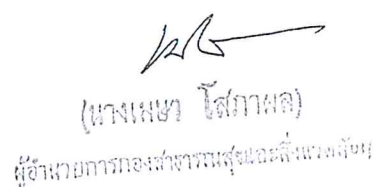 (นางเมษา โสภาผล)
ผู้อำนวยการกองสาธารณสุขและสิ่งแวดล้อม